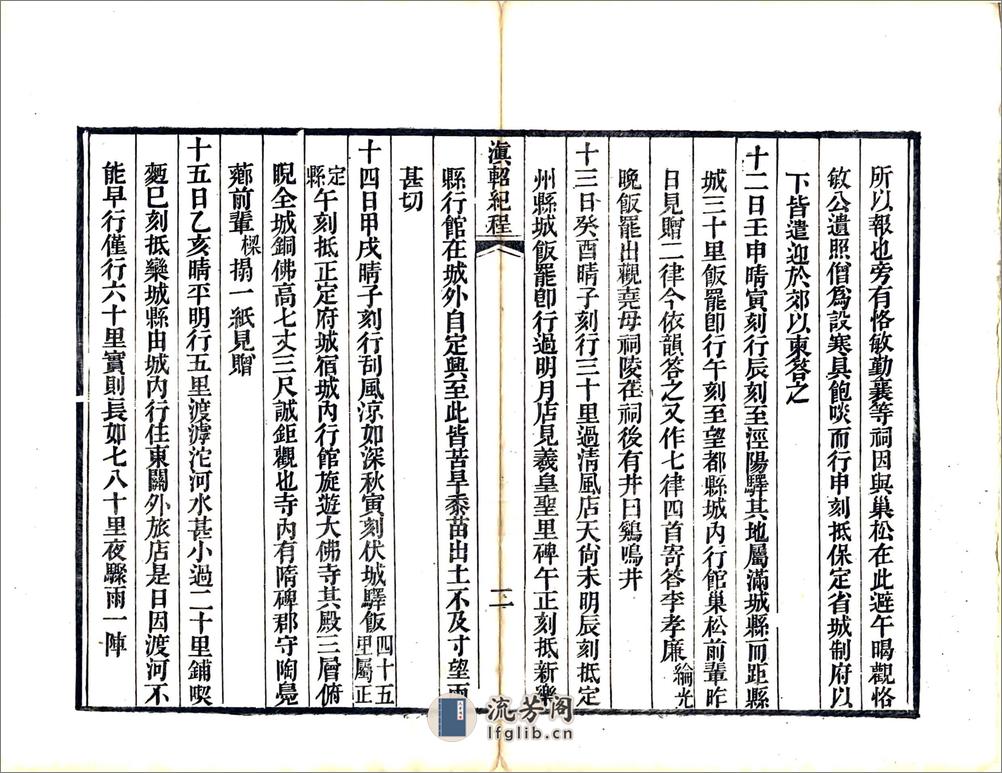 所以報也旁有恪敏勤襄等祠因與巢松在此避午暍觀恪
敏公遺照僧爲設寒具飽啖而行申刻抵保定省城制府以
下皆遣迎於郊以柬答之
十二日壬申晴寅刻行辰刻至涇陽驛其地屬滿城縣而距縣
城三十里飯罷卽行午刻至望都縣城內行館巢松前輩昨
日見贈二律今依韻答之又作七律四首寄答李孝廉綸光
晚飯罷出觀堯母祠陵在祠後有井曰鷄鳴井
十三日癸酉晴子刻行三十里過清風店天尙未明辰刻抵定
州縣城飯罷卽行過明月店見羲皇聖里碑午正刻抵新樂
滇軺紀程
三
縣行館在城外自定興至此皆苦旱黍苗出土不及寸望雨
甚切
十四日甲戌晴子刻行刮風涼如深秋寅刻伏城驛飯四十五里屬正
定縣午刻抵正定府城宿城內行館旋遊大佛寺其殿三層俯
睨全城銅佛高七丈三尺誠鉅觀也寺內有隋碑郡守陶鳧
薌前輩樑搨一紙見贈
十五日乙亥晴平明行五里渡滹沱河水甚小過二十里鋪喫
麪巳刻抵欒城縣由城內行住東關外旅店是日因渡河不
能早行僅行六十里實則長如七八十里夜驟雨一陣
流芳阁
lfglib.cn